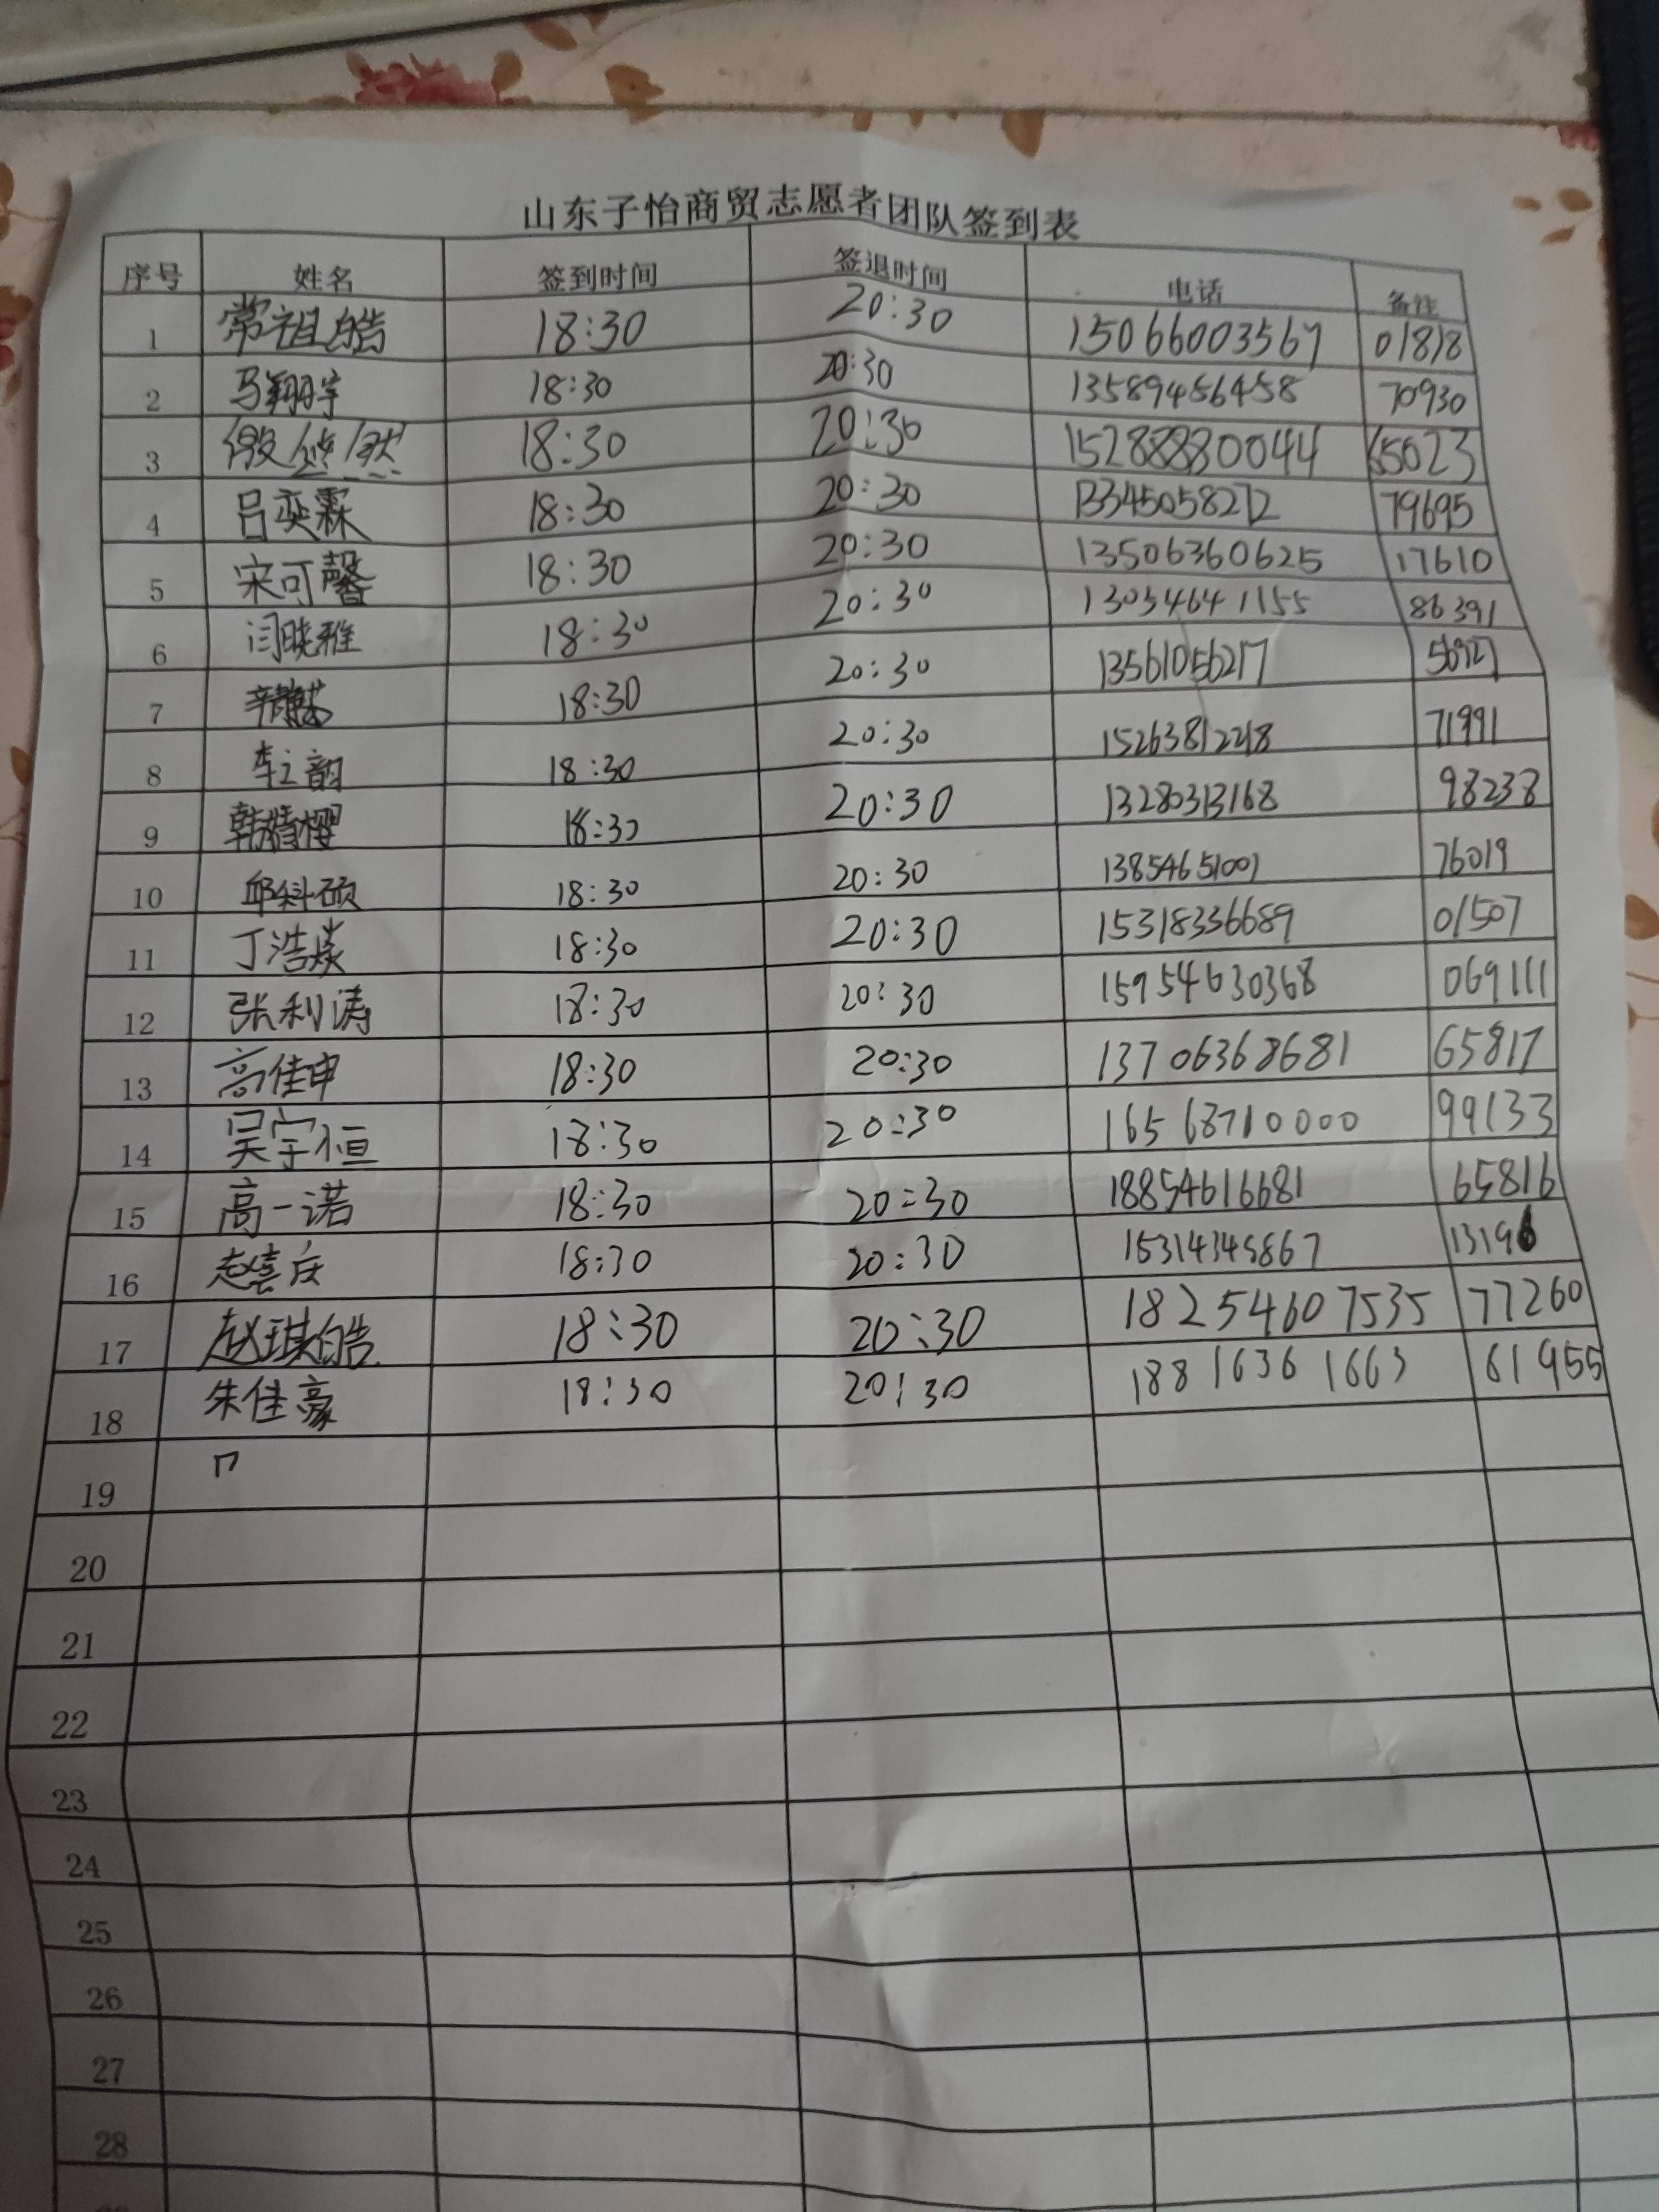 山东子怡商贸志愿者团队签到表
序号 姓名 签到时间 签退时间 电话 备注
1 常祖皓 18:30 20:30 15066003567 01818
2 马翔宇 18:30 20:30 13589456458 70930
3 缴悠然 18:30 20:30 15288880044 65023
4 吕奕霖 18:30 20:30 13345058272 79695
5 宋可馨 18:30 20:30 13506360625 17610
6 闫晓雅 18:30 20:30 13054641155 86391
7 18:30 20:30 13561056217
8 李之韵 18:30 20:30 15263812218 71991
9 韩婧樱 18:30 20:30 13280313168 98238
10 邱科硕 18:30 20:30 13854651001 76019
11 丁浩焱 18:30 20:30 15318336689 01507
12 张利涛 18:30 20:30 15954630368 069111
13 高佳申 18:30 20:30 13706368681 65817
14 吴宇恒 18:30 20:30 16568710000 99133
15 高一诺 18:30 20:30 18854616681 65816
16 赵喜庆 18:30 20:30 15314345867 13196
17 赵琪皓 18:30 20:30 18254607535 77260
18 朱佳豪 18:30 20:30 18816361663 61955
19
20
21
22
23
24
25
26
27
28